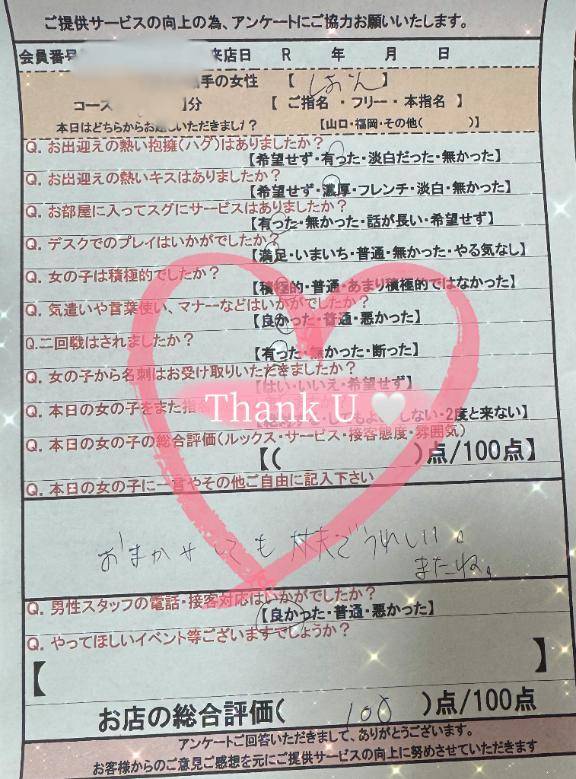 ご提供サービスの向上の為、アンケートにご協力お願いいたします。
会員番号 来店日 R 年 月 日
手の女性 【 しおん 】
コース 】分 【 ご指名 ・ フリー ・ 本指名 】
本日はどちらからお越しいただきました? 【山口・福岡・その他( )】
Q. お出迎えの熱い抱擁(ハグ)はありましたか?
【希望せず・有った・淡白だった・無かった】
Q. お出迎えの熱いキスはありましたか?
【希望せず・濃厚・フレンチ・淡白・無かった】
Q. お部屋に入ってスグにサービスはありましたか?
【有った・無かった・話が長い・希望せず】
Q. デスクでのプレイはいかがでしたか?
【満足・いまいち・普通・無かった・やる気なし】
Q. 女の子は積極的でしたか?
【積極的・普通・あまり積極的ではなかった】
Q. 気遣いや言葉使い、マナーなどはいかがでしたか?
【良かった・普通・悪かった】
Q.二回戦はされましたか?
【有った・無かった・断った】
Q. 女の子から名刺はお受け取りいただきましたか?
【はい・いいえ・希望せず】
Q. 本日の女の子をまた指
しない・2度と来ない】
Thank U 🤍
Q. 本日の女の子の総合評価(ルックス・サービス・接客態度・雰囲気)
【( )点/100点】
Q. 本日の女の子に一言やその他ご自由に記入下さい
おまかせしても 大丈夫でうれしい。
またね。
Q. 男性スタッフの電話・接客対応はいかがでしたか?
【良かった・普通・悪かった】
Q. やってほしいイベント等ございますでしょうか?
【 】
お店の総合評価( 100 )点/100点
アンケートご回答いただきまして、ありがとうございます。
お客様からのご意見ご感想を元にご提供サービスの向上に努めさせていただきます